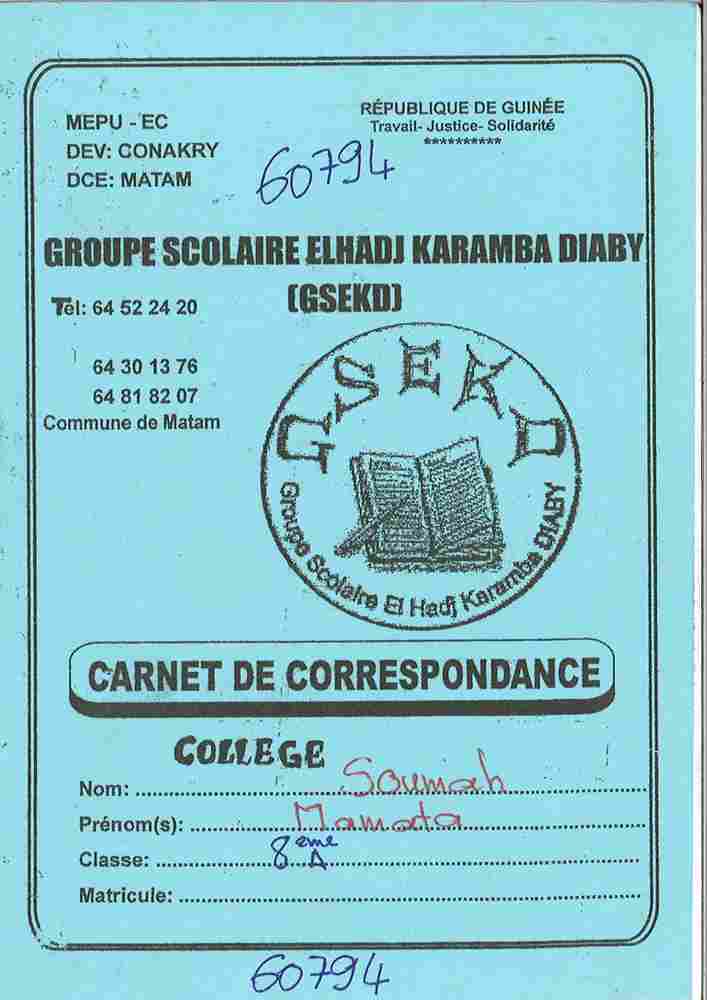 MEPU - EC
DEV: CONAKRY
DCE: MATAM
RÉPUBLIQUE DE GUINÉE
Travail- Justice- Solidarité
**********
60794
GROUPE SCOLAIRE ELHADJ KARAMBA DIABY
(GSEKD)
Tél: 64 52 24 20
64 30 13 76
64 81 82 07
Commune de Matam
GSEKD
Groupe Scolaire El Hadj Karamba DIABY
CARNET DE CORRESPONDANCE
COLLEGE
Nom: Soumah
Prénom(s): Mamata
Classe: 8ème A
Matricule:
60794